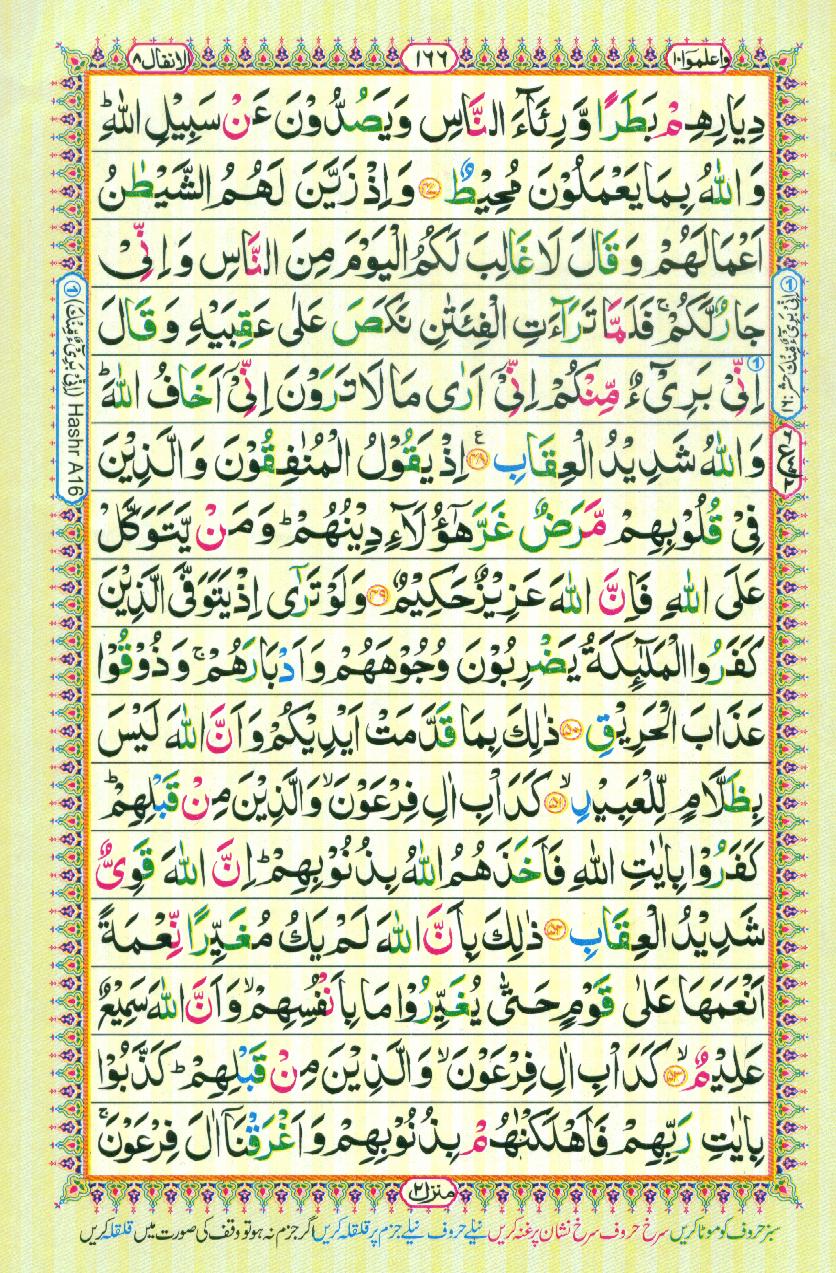 واعلموا١٠ ١٦٦ الانفال٨
دِيَارِهِمْ بَطَرًا وَّرِئَآءَ النَّاسِ وَيَصُدُّوْنَ عَنْ سَبِيْلِ اللّٰهِ ؕ
وَاللّٰهُ بِمَا يَعْمَلُوْنَ مُحِيْطٌ ﴿۴۷﴾ وَاِذْ زَيَّنَ لَهُمُ الشَّيْطٰنُ
اَعْمَالَهُمْ وَقَالَ لَا غَالِبَ لَكُمُ الْيَوْمَ مِنَ النَّاسِ وَاِنِّىْ
جَارٌ لَّكُمْ ۚ فَلَمَّا تَرَآءَتِ الْفِئَتٰنِ نَكَصَ عَلٰى عَقِبَيْهِ وَقَالَ
اِنِّىْ بَرِىْٓءٌ مِّنْكُمْ اِنِّىْۤ اَرٰى مَا لَا تَرَوْنَ اِنِّىْۤ اَخَافُ اللّٰهَ ؕ
وَاللّٰهُ شَدِيْدُ الْعِقَابِ ﴿۴۸﴾ اِذْ يَقُوْلُ الْمُنٰفِقُوْنَ وَالَّذِيْنَ
فِىْ قُلُوْبِهِمْ مَّرَضٌ غَرَّ هٰٓؤُلَآءِ دِيْنُهُمْ ؕ وَمَنْ يَّتَوَكَّلْ
عَلَى اللّٰهِ فَاِنَّ اللّٰهَ عَزِيْزٌ حَكِيْمٌ ﴿۴۹﴾ وَلَوْ تَرٰٓى اِذْ يَتَوَفَّى الَّذِيْنَ
كَفَرُوا الْمَلٰٓئِكَةُ يَضْرِبُوْنَ وُجُوْهَهُمْ وَاَدْبَارَهُمْ ۚ وَذُوْقُوْا
عَذَابَ الْحَرِيْقِ ﴿۵۰﴾ ذٰلِكَ بِمَا قَدَّمَتْ اَيْدِيْكُمْ وَاَنَّ اللّٰهَ لَيْسَ
بِظَلَّامٍ لِّلْعَبِيْدِ ﴿۵۱﴾ ۙ كَدَاْبِ اٰلِ فِرْعَوْنَ ۙ وَالَّذِيْنَ مِنْ قَبْلِهِمْ ؕ
كَفَرُوْا بِاٰيٰتِ اللّٰهِ فَاَخَذَهُمُ اللّٰهُ بِذُنُوْبِهِمْ ؕ اِنَّ اللّٰهَ قَوِىٌّ
شَدِيْدُ الْعِقَابِ ﴿۵۲﴾ ذٰلِكَ بِاَنَّ اللّٰهَ لَمْ يَكُ مُغَيِّرًا نِّعْمَةً
اَنْعَمَهَا عَلٰى قَوْمٍ حَتّٰى يُغَيِّرُوْا مَا بِاَنْفُسِهِمْ ۙ وَاَنَّ اللّٰهَ سَمِيْعٌ
عَلِيْمٌ ﴿۵۳﴾ ۙ كَدَاْبِ اٰلِ فِرْعَوْنَ ۙ وَالَّذِيْنَ مِنْ قَبْلِهِمْ ؕ كَذَّبُوْا
بِاٰيٰتِ رَبِّهِمْ فَاَهْلَكْنٰهُمْ بِذُنُوْبِهِمْ وَاَغْرَقْنَاۤ اٰلَ فِرْعَوْنَ ۚ
منزل٢
سبز حروف کو موٹا کریں سرخ حروف سرخ نشان پر غنہ کریں نیلے حروف نیلے جزم پر قلقلہ کریں اگر جزم نہ ہو تو وقف کی صورت میں قلقلہ کریں
① اِنِّىْ بَرِىْٓءٌ مِّنْكَ حشر ١٦
① (اِنِّىْ بَرِىْٓءٌ مِّنْكَ) Hashr A16